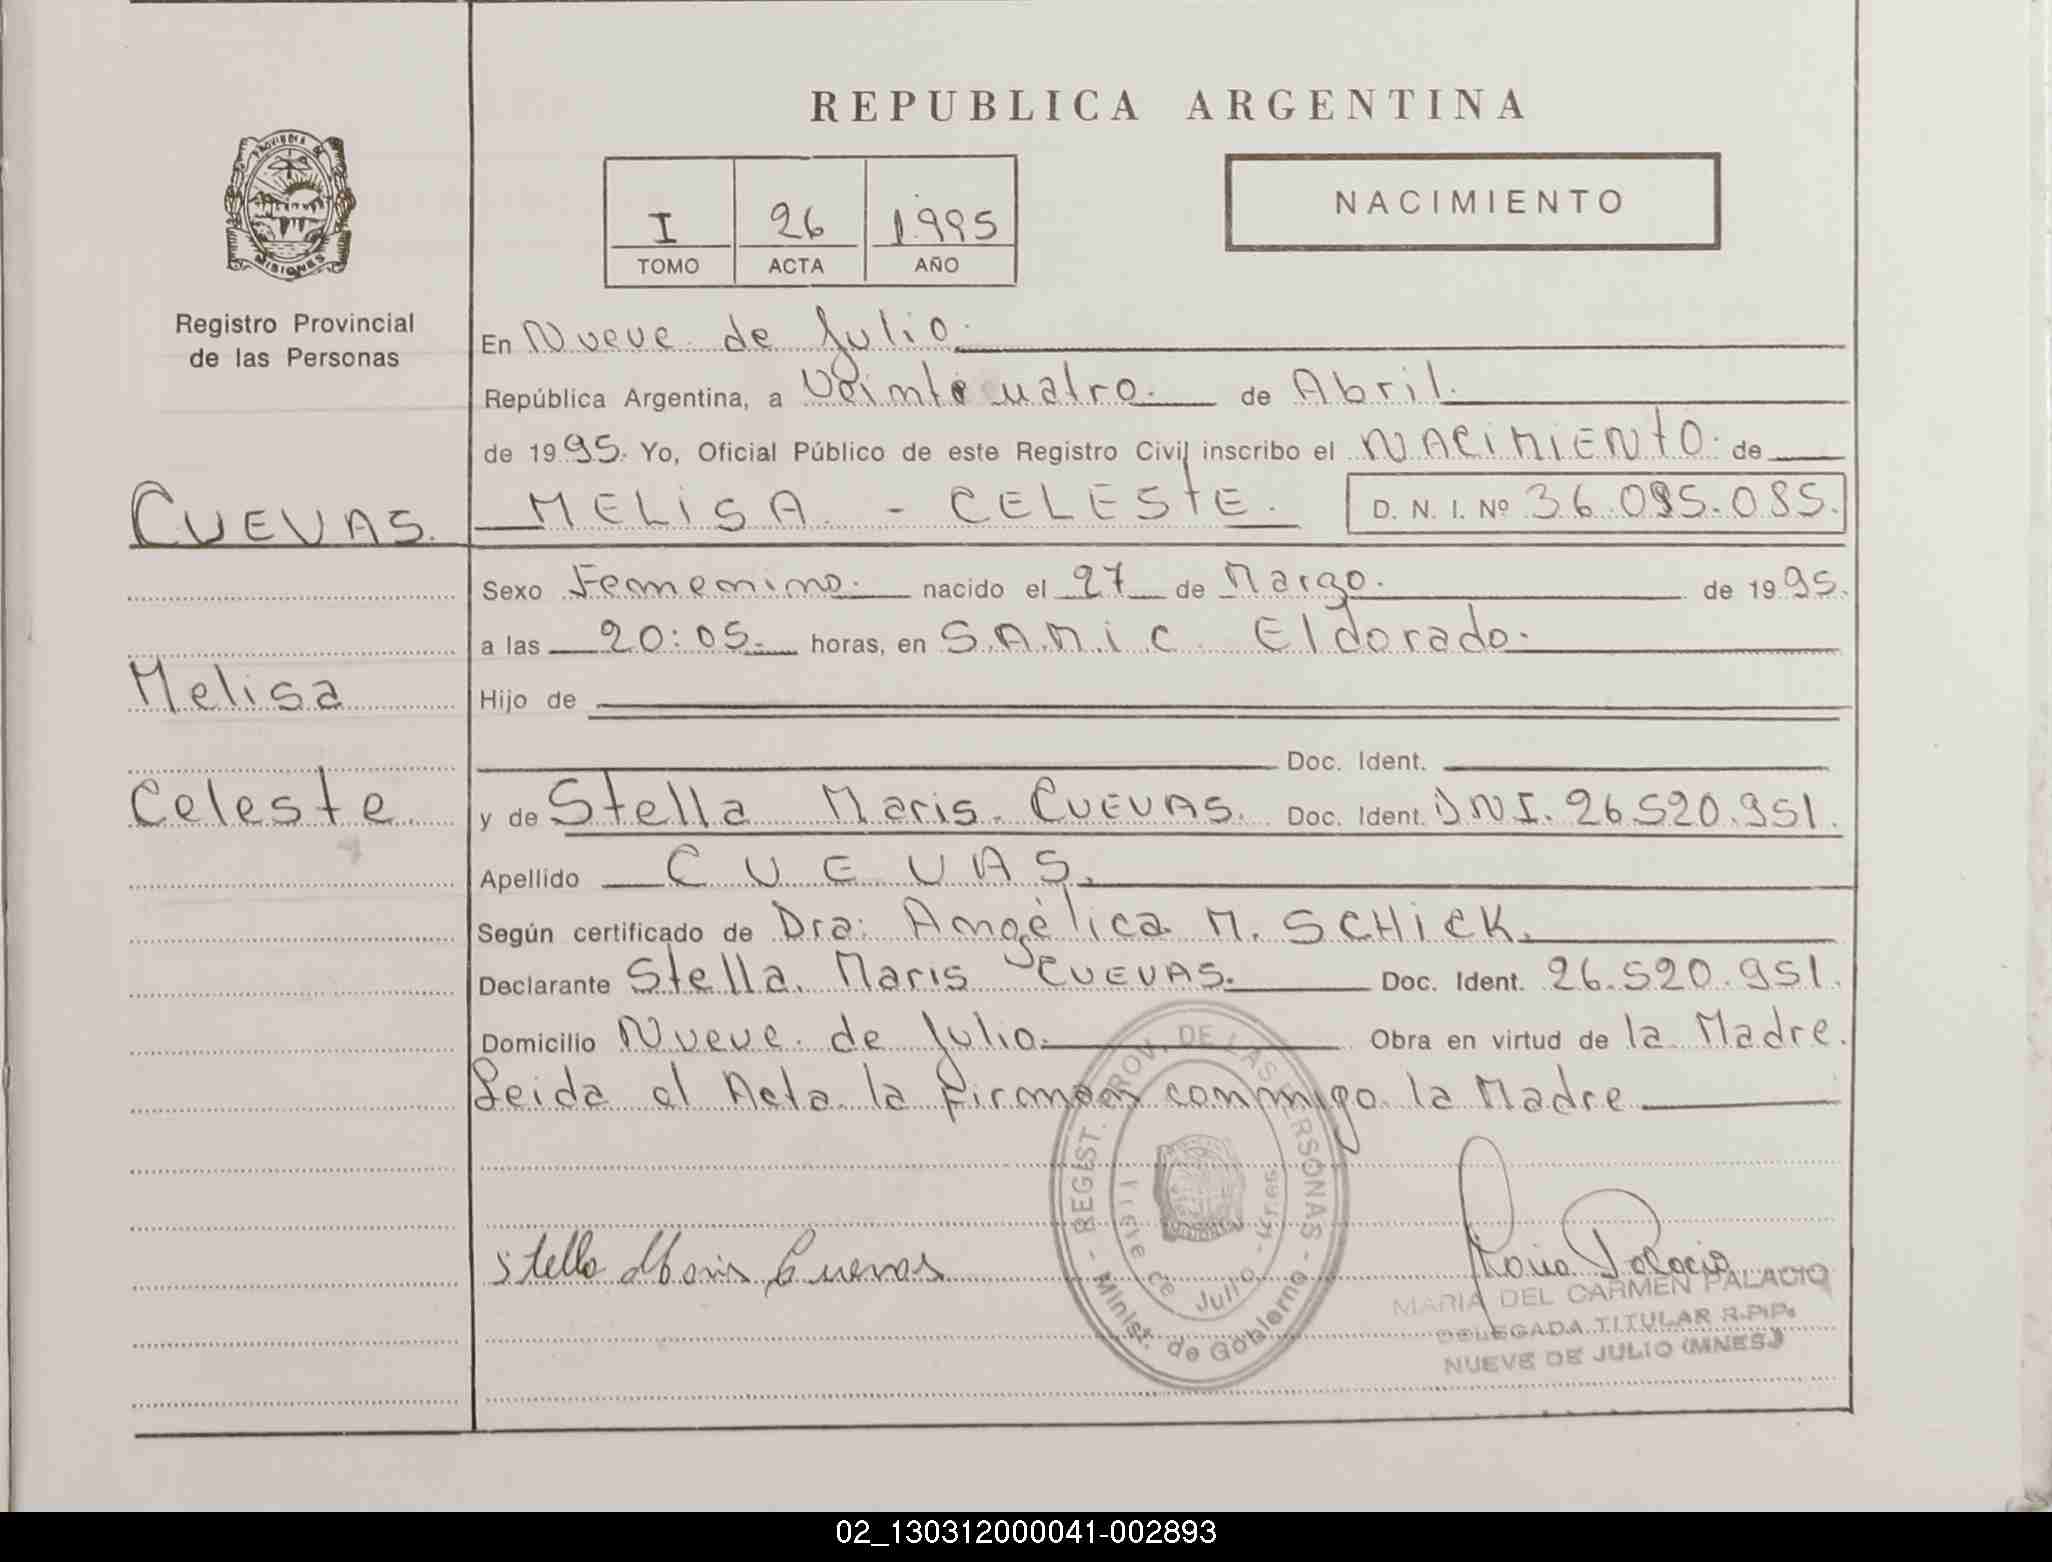 REPUBLICA ARGENTINA
PROVINCIA DE MISIONES
Registro Provincial
de las Personas
I 26 1995
TOMO ACTA AÑO
NACIMIENTO
En Nueve de Julio.
República Argentina, a Veinte cuatro. de Abril.
de 1995. Yo, Oficial Público de este Registro Civil inscribo el NACIMIENTO. de
CUEVAS. MELISA - CELESTE. D. N. I. Nº 36.095.085.
Sexo Femenino. nacido el 27 de Marzo. de 1995.
a las 20:05. horas, en S.A.M.i.C. Eldorado.
Melisa Hijo de
Doc. Ident.
Celeste y de Stella Maris. CUEVAS. Doc. Ident. DNI. 26.520.951.
Apellido CUEVAS.
Según certificado de Dra: Angélica M. SCHiCK.
Declarante Stella. Maris CUEVAS. Doc. Ident. 26.520.951.
Domicilio Nueve. de Julio. Obra en virtud de la Madre.
Leida el Acta la firman conmigo la Madre
REGIST. PROV. DE LAS PERSONAS - Minist. de Gobierno -
Nueve de Julio -
Stella Maris Cuevas
Maria Palacio
MARIA DEL CARMEN PALACIO
DELEGADA TITULAR R.P.P.
NUEVE DE JULIO (MNES.)
02_130312000041-002893